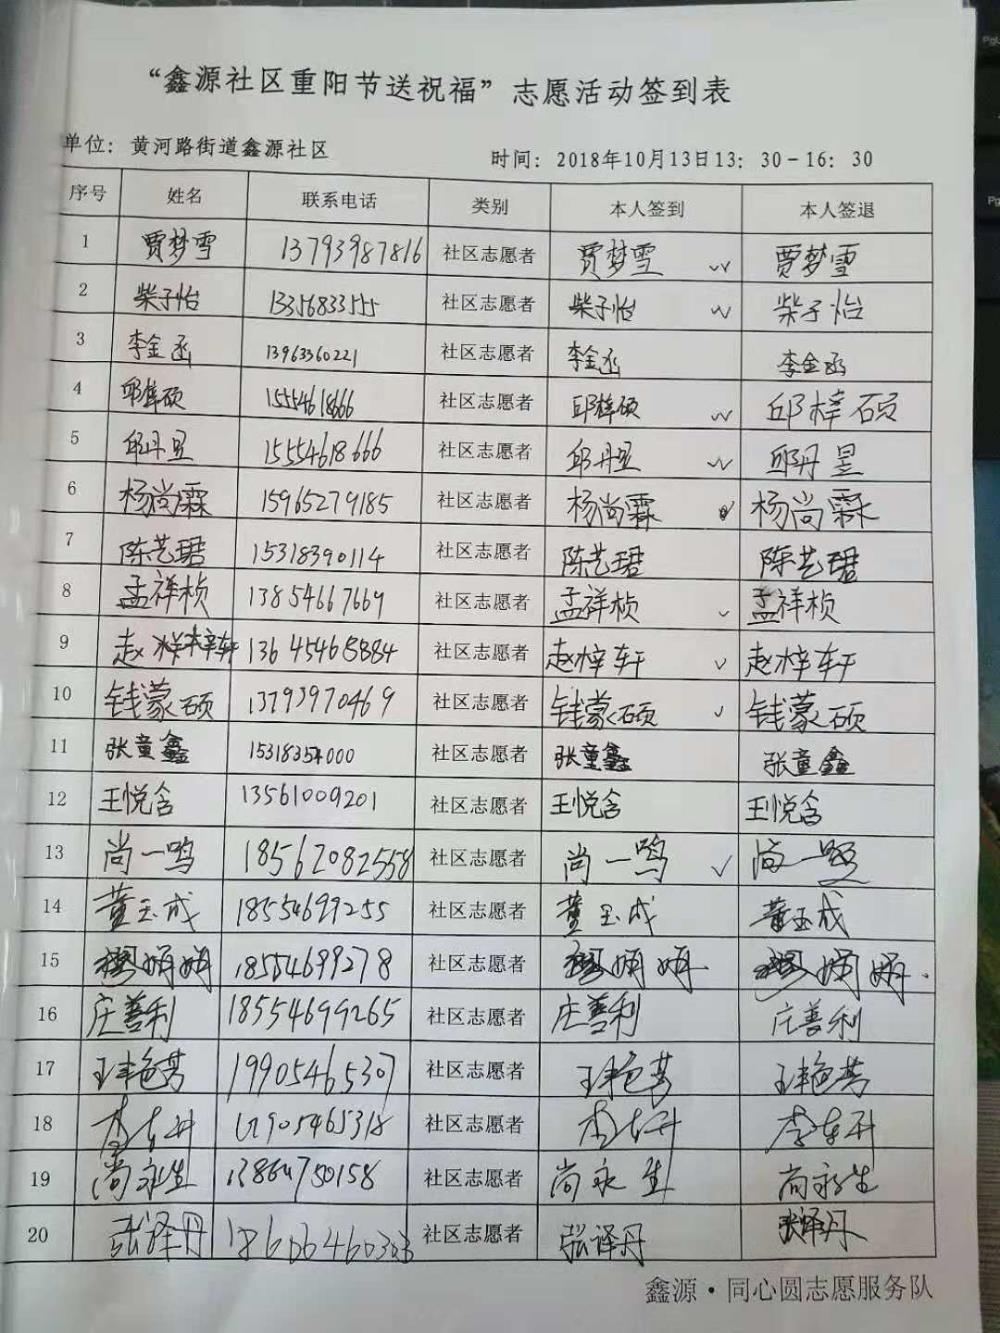 “鑫源社区重阳节送祝福”志愿活动签到表
单位：黄河路街道鑫源社区 时间：2018年10月13日13：30-16：30
序号 姓名 联系电话 类别 本人签到 本人签退
1 贾梦雪 13793987816 社区志愿者 贾梦雪 贾梦雪
2 柴子怡 13356833555 社区志愿者 柴子怡 柴子怡
3 李金丞 13963360221 社区志愿者 李金丞 李金丞
4 邱梓硕 15554618666 社区志愿者 邱梓硕 邱梓硕
5 邱丹昱 15554618666 社区志愿者 邱丹昱 邱丹昱
6 杨尚霖 15965279185 社区志愿者 杨尚霖 杨尚霖
7 陈艺珺 15318390114 社区志愿者 陈艺珺 陈艺珺
8 孟祥桢 13854667669 社区志愿者 孟祥桢 孟祥桢
9 赵梓轩 13645468884 社区志愿者 赵梓轩 赵梓轩
10 钱蒙硕 13793970469 社区志愿者 钱蒙硕 钱蒙硕
11 张童鑫 15318354000 社区志愿者 张童鑫 张童鑫
12 王悦含 13561009201 社区志愿者 王悦含 王悦含
13 尚一鸣 18562082558 社区志愿者 尚一鸣 尚一鸣
14 董玉成 18554699255 社区志愿者 董玉成 董玉成
15 穆娟娟 18554699278 社区志愿者 穆娟娟 穆娟娟
16 庄善利 18554699265 社区志愿者 庄善利 庄善利
17 王艳芳 19905465307 社区志愿者 王艳芳 王艳芳
18 社区志愿者
19 尚永生 13864750158 社区志愿者 尚永生 尚永生
20 张译丹 社区志愿者 张译丹 张译丹
鑫源·同心圆志愿服务队